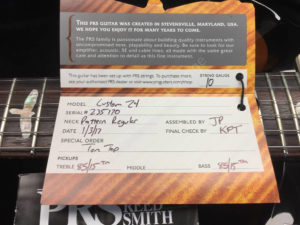 THIS PRS GUITAR WAS CREATED IN STEVENSVILLE, MARYLAND, USA.
WE HOPE YOU ENJOY IT FOR MANY YEARS TO COME.
The PRS family is passionate about building quality instruments with
uncompromised tone, playability and beauty. Be sure to look for our
amplifier, acoustic, SE and cable lines, all made with the same great care
and attention to detail as this instrument.
This guitar has been setup with PRS strings. To purchase more,
see your authorized PRS dealer or visit www.prsguitars.com/shop.
STRING GAUGE
10
MODEL Custom 24
SERIAL # 235170
NECK Pattern Regular
ASSEMBLED BY JP
DATE 1/3/17
FINAL CHECK BY KPT
SPECIAL ORDER
Ten Top
PICKUPS
TREBLE 85/15 TM
MIDDLE
BASS 85/15 TM
PRS
REED
SMITH